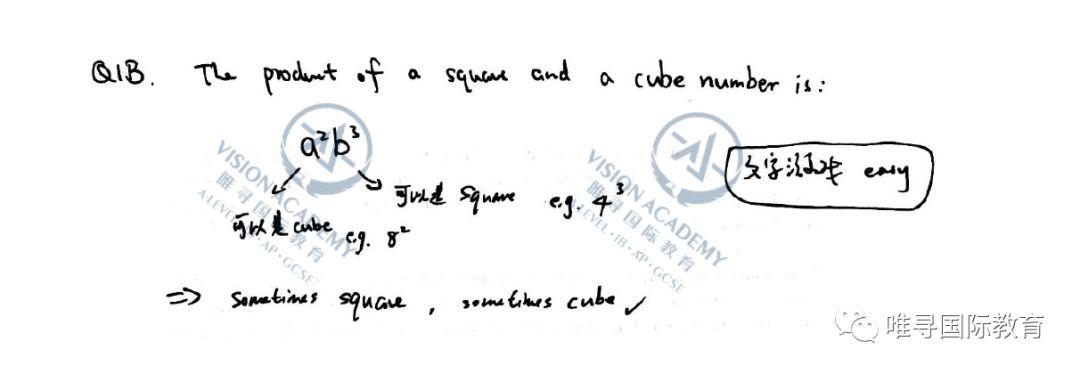 Q1B. The product of a square and a cube number is:
a²b³
文字游戏 easy
可以是 square e.g. 4³
可以是 cube e.g. 8²
=> sometimes square, sometimes cube ✓
VISION ACADEMY
唯寻国际教育
A LEVEL·IB·AP·GCSE
VISION ACADEMY
唯寻国际教育
A LEVEL·IB·AP·GCSE
唯寻国际教育